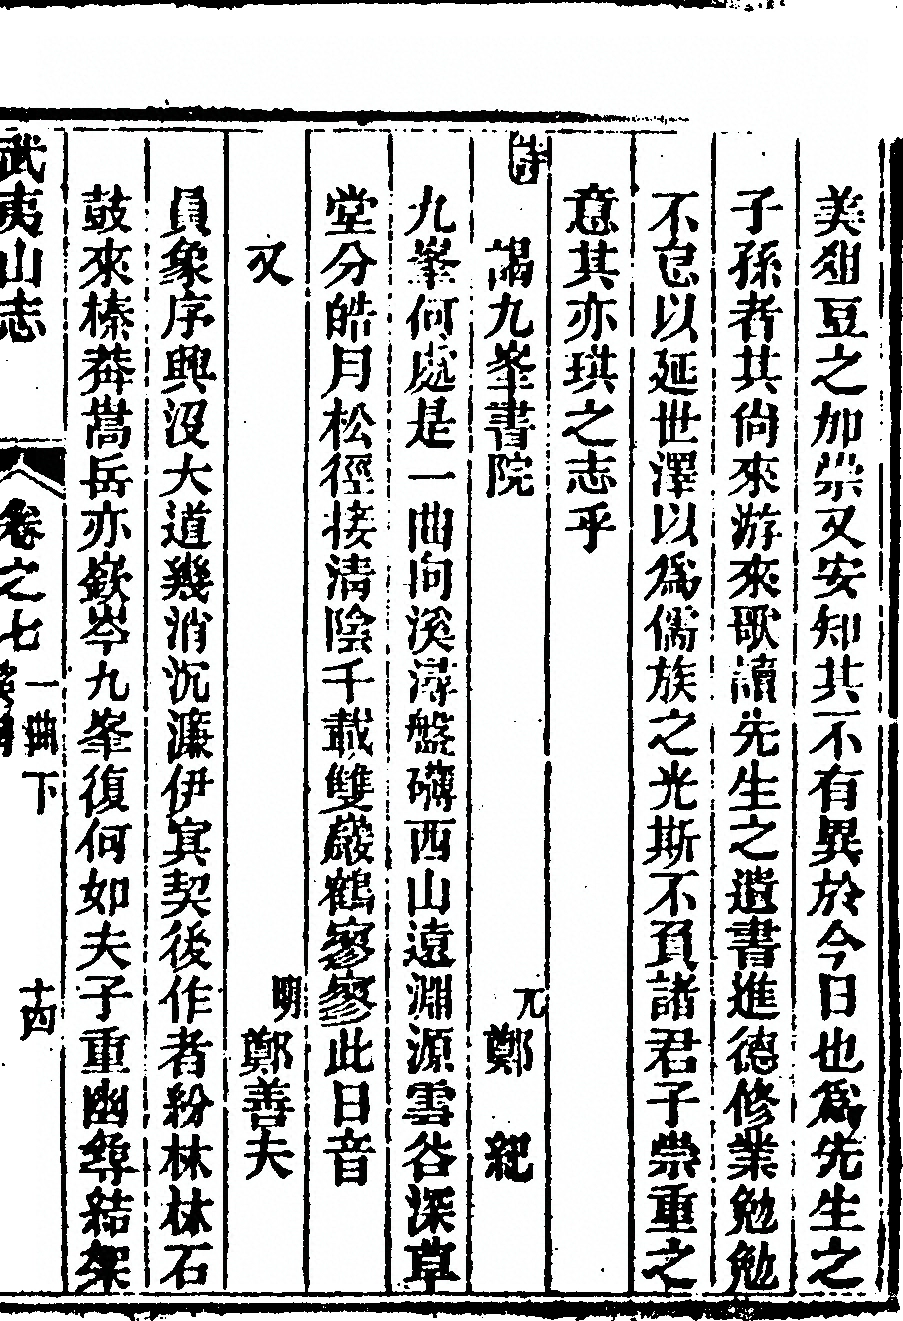 美俎豆之加崇又安知其不有異於今日也爲先生之
子孫者其尙來游來歌讀先生之遺書進德修業勉勉
不怠以延世澤以爲儒族之光斯不負諸君子崇重之
意其亦琪之志乎
詩 謁九峯書院 元 鄭 紀
九峯何處是一曲向溪潯盤礴西山遠淵源雲谷深草
堂分皓月松徑接清陰千載雙巖鶴寥寥此日音
又 明 鄭善夫
員象序興沒大道幾消沉濂伊寘契後作者紛林林石
鼓來榛莽嵩岳亦嶔岑九峯復何如夫子重幽尋結架
武夷山志 卷之七 一曲下 十四